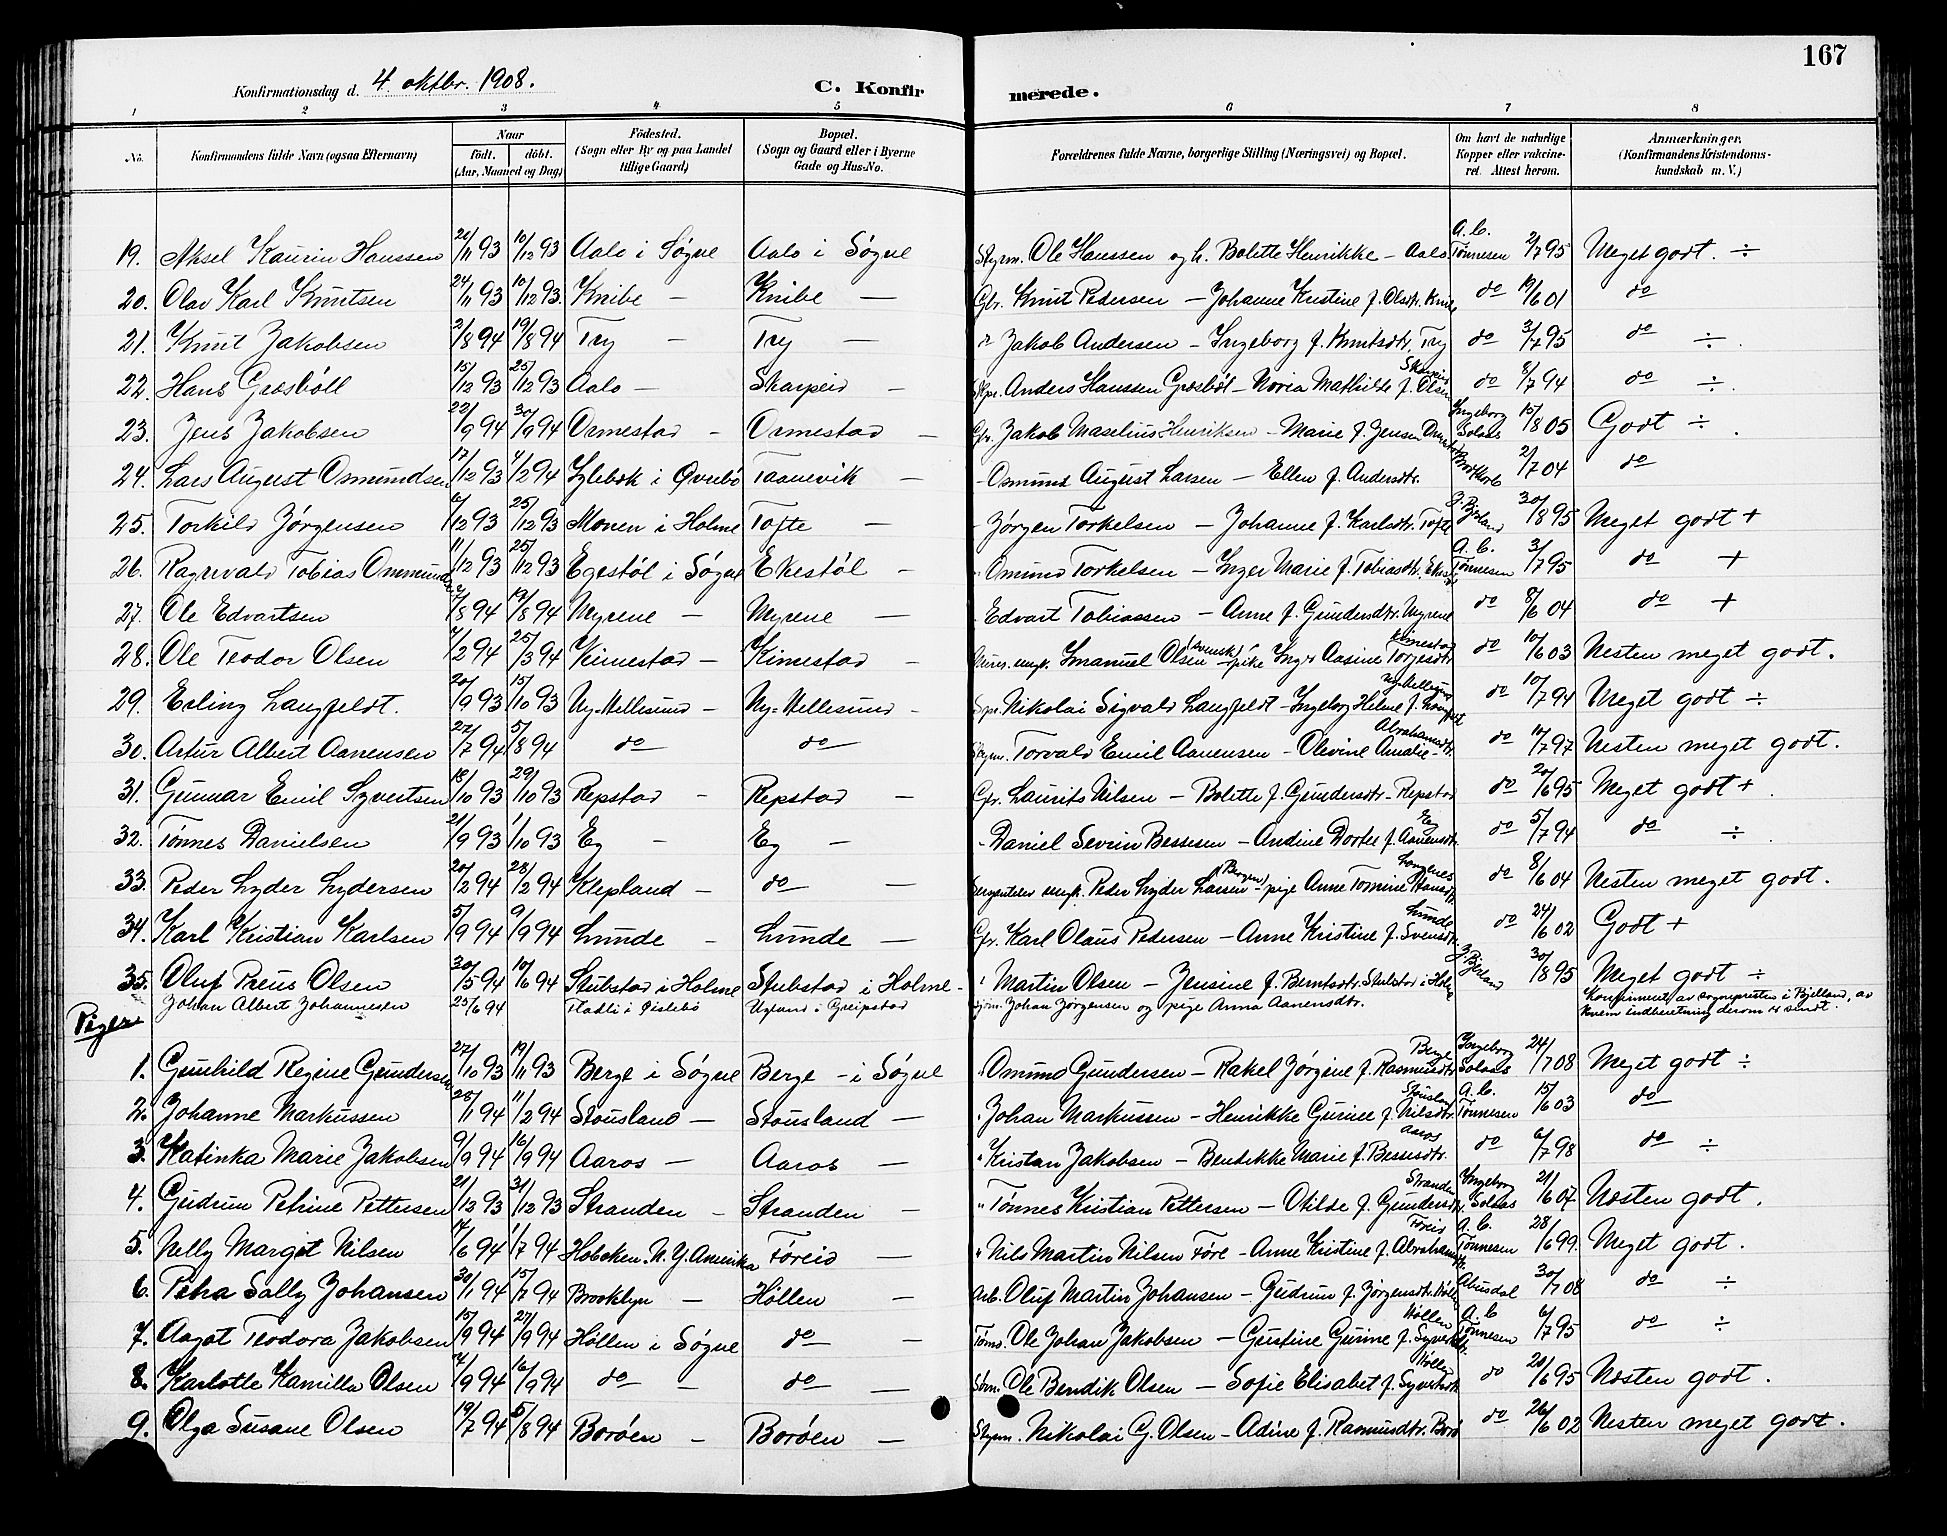 167
Konfirmationsdag d. 4 oktbr. 1908. C. Konfirmerede.
1 2 3 4 5 6 7 8
No. Konfirmandens fulde Navn (ogsaa Efternavn) Naar født. døbt. (Aar, Maaned og Dag) Fødested. (Sogn eller By og paa Landet tillige Gaard) Bopæl. (Sogn og Gaard eller i Byerne Gade og Hus-No. Forældrenes fulde Navne, borgerlige Stilling (Næringsvei) og Bopæl. Om havt de naturlige Kopper eller vakcineret. Attest herom. Anmærkninger. (Konfirmandens Kristendomskundskab m. V.)
19. Aksel Kaurin Hanssen 20/11 93 10/12 93 Aalo i Søgne Aalo i Søgne Styrm. Ole Hanssen og h. Bolette Henrikke - Aalo A. C. Tønnesen 2/7 95 Meget godt. ÷
20. Olav Karl Knutsen 24/11 93 10/12 93 Knibe — Knibe — Gbr. Knut Pedersen — Johanne Kristine f. Olsdtr. Knibe do 19/6 01 do
21. Knut Jakobsen 2/8 94 19/8 94 Try — Try — Jakob Andersen — Ingeborg f. Knutsdtr. Try do 3/7 95 do ÷
22. Hans Grosbøll 15/12 93 25/12 93 Aalo — Skarpeid — Anders Hanssen Grosbøl — Maria Mathilde f. Olsen Skarpeid do 8/7 94 do ÷
23. Jens Jakobsen 22/9 94 30/9 94 Ormestad — Ormestad — Gbr. Jakob Maselius Henriksen — Marie f. Jensen Ingeborg Solaas 15/8 05 Godt ÷
24. Lars August Osmundsen 17/12 93 4/2 94 Lylebæk i Øvrebø Taanevik — Osmund August Larsen — Ellen f. Andersdtr. 2/7 04 do
25. Torkild Jørgensen 6/12 93 25/12 93 Monen i Holme Tofte — Jørgen Torkelsen — Johanne f. Karlsdtr. Tofte J. Bjelland 30/8 95 Meget godt +
26. Ragnvald Tobias Ommundsen 11/12 93 25/12 93 Egestøl i Søgne Ekestøl — Omund Torkelsen — Inger Marie f. Tobiasdtr. A. C. Tønnesen 3/7 95 do +
27. Ole Edvartsen 2/8 94 19/8 94 Myrene — Myrene — Edvart Tobiassen — Anne f. Gundersdtr. Myrene do 8/6 04 do +
28. Ole Teodor Olsen 4/2 94 25/3 94 Kimestad — Kimestad — ungk. Emanuel Olsen (svensk) — pike Inger Aasine Torjesdtr. Kimestad do 10/6 03 Nesten meget godt.
29. Erling Langfeldt. 20/9 93 15/10 93 Ny-Hellesund — Ny=Hellesund — Nikolai Sigvald Langfeldt — Ingeborg Helene f. Ny-Hellesund do 10/7 94 Meget godt ÷
30. Artur Albert Aanensen 22/7 94 5/8 94 do do Styrm. Torvald Emil Aanensen — Olevine Amalie Abrahamsdtr. do 10/7 97 Nesten meget godt.
31. Gunnar Emil Syvertsen 18/10 93 29/10 93 Repstad — Repstad — Gbr. Laurits Nilsen — Bolette f. Gundersdtr. Repstad do 20/6 95 Meget godt +
32. Tønnes Danielsen 21/9 93 1/10 93 Eg — Eg — Daniel Severin Bessesen — Andine Dortea f. Aanensdtr. Eg do 5/7 94 do ÷
33. Peder Lyder Lydersen 20/2 94 28/2 94 Klepland — do — ungk. Peder Lyder Larsen (Bergen) — pige Anne Tomine Hansdtr. Langenes do 8/6 04 Nesten meget godt.
34. Karl Kristian Karlsen 5/9 94 9/9 94 Lunde — Lunde — Gbr. Karl Olaus Pedersen — Anne Kristine f. Svensdtr. Lunde do 24/6 02 Godt +
35. Oluf Preus Olsen 30/5 94 10/6 94 Stubstad i Holme Stubstad i Holme — Martin Olsen — Jensine f. Berntsdtr. Stubstad i Holme J. Bjelland 30/8 95 Meget godt ÷
Johan Albert Johannesen 25/6 94 Fladli i Øislebø Ugland i Greipstad Johan Jørgensen og pige Anna Aanensdtr. Konfirmert av sognepresten i Bjelland, av hvem indberetning derom er sendt.
Piger
1. Gunhild Regine Gundersen 27/10 93 19/11 93 Berge i Søgne Berge — i Søgne Omund Gundersen — Rakel Jørgine f. Rasmusdtr. Berge Ingeborg Solaas 24/7 08 Meget godt ÷
2. Johanne Markussen 28/1 94 11/2 94 Stousland — Stousland — Johan Markussen — Henrikke Gurine f. Nilsdtr. Stousland A. C. Tønnesen 15/6 03 do
3. Katinka Marie Jakobsen 9/9 94 16/9 94 Aaros — Aaros — Kristian Jakobsen — Bendikke Marie f. Bessesdtr. Aaros do 6/7 98 do ÷
4. Gudrun Petrine Pettersen 21/12 93 31/12 93 Stranden — Stranden — Tønnes Kristian Pettersen — Otilde f. Gundersdtr. Stranden Ingeborg Solaas 21/6 07 Næsten godt.
5. Nelly Margit Nilsen 14/6 94 1/7 94 Hoboken. N. Y. Amerika Føreid — Nils Martin Nilsen Føre — Anne Kristine f. Abrahamsdtr. Føreid A. C. Tønnesen 28/6 99. Meget godt.
6. Petra Sally Johansen 30/1 94 15/7 94 Brooklyn — Høllen — Arb. Oluf Martin Johansen — Gudrun f. Jørgensdtr. Høllen Abusdal 30/7 08 do ÷
7. Aagot Teodora Jakobsen 15/9 94 27/9 94 Høllen i Søgne do — Tøms. Ole Johan Jakobsen — Gustine Gurine f. Syvertsdtr. Høllen A. C Tønnesen 6/7 95 do ÷
8. Karlotte Kamilla Olsen 4/9 94 16/9 94 do — do — Ole Bendik Olsen — Sofie Elisabet f. Syvertsdtr. Høllen do 20/6 95 Næsten godt.
9. Olga Susane Olsen 19/7 94 5/8 94 Borøen — Borøen — Styrm. Nikolai G. Olsen — Adine f. Rasmusdtr. Borø do 26/6 02 Nesten meget godt.